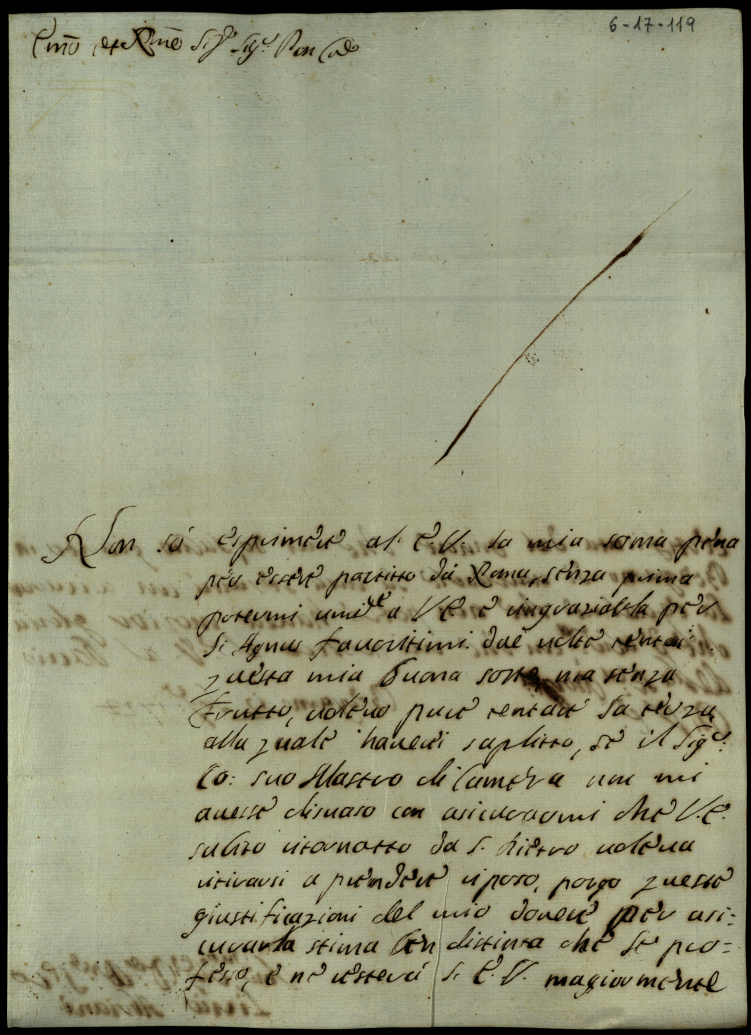 6-17-119
Emo e Rmo Sigr Sigr Pron Colo
Non sò esprimere al' E.V. la mia soma pena
per essere partitto da Roma, senza prima
potermi umile a V.E. e ringraziarla per
li Agnus favoritimi. due volte tentai
questa mia buona sorte, ma senza
frutto, volevo pure tentare la terza
alla quale haverei suplitto, se il Sigr
Co: suo Mastro di Camera non mi
avesse disuaso con asicurarmi che V.E.
subito ritornatto da S. Pietro voleva
ritirarsi a prendere riposo, porgo queste
giustificazioni del mio dovere per asi=
curarla stima ben distinta che le pro=
feso, e ne resterà l' E.V. magiormente